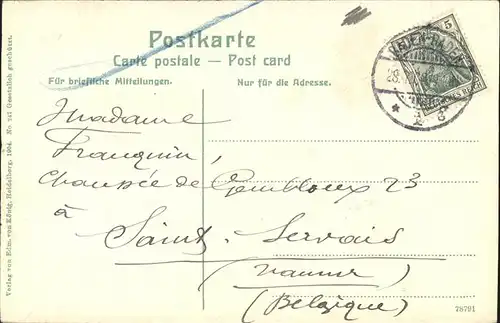 Postkarte
Carte postale — Post card
Für briefliche Mitteilungen.
Nur für die Adresse.
5
BADEN-BADEN
DEUTSCHES REICH
Madame
Franquin,
Chaussée de Gembloux 23
à
Saint-Servais
(Namur)
(Belgique)
Verlag von Edm. von König, Heidelberg. 1904. No 157 Gesetzlich geschützt.
78791